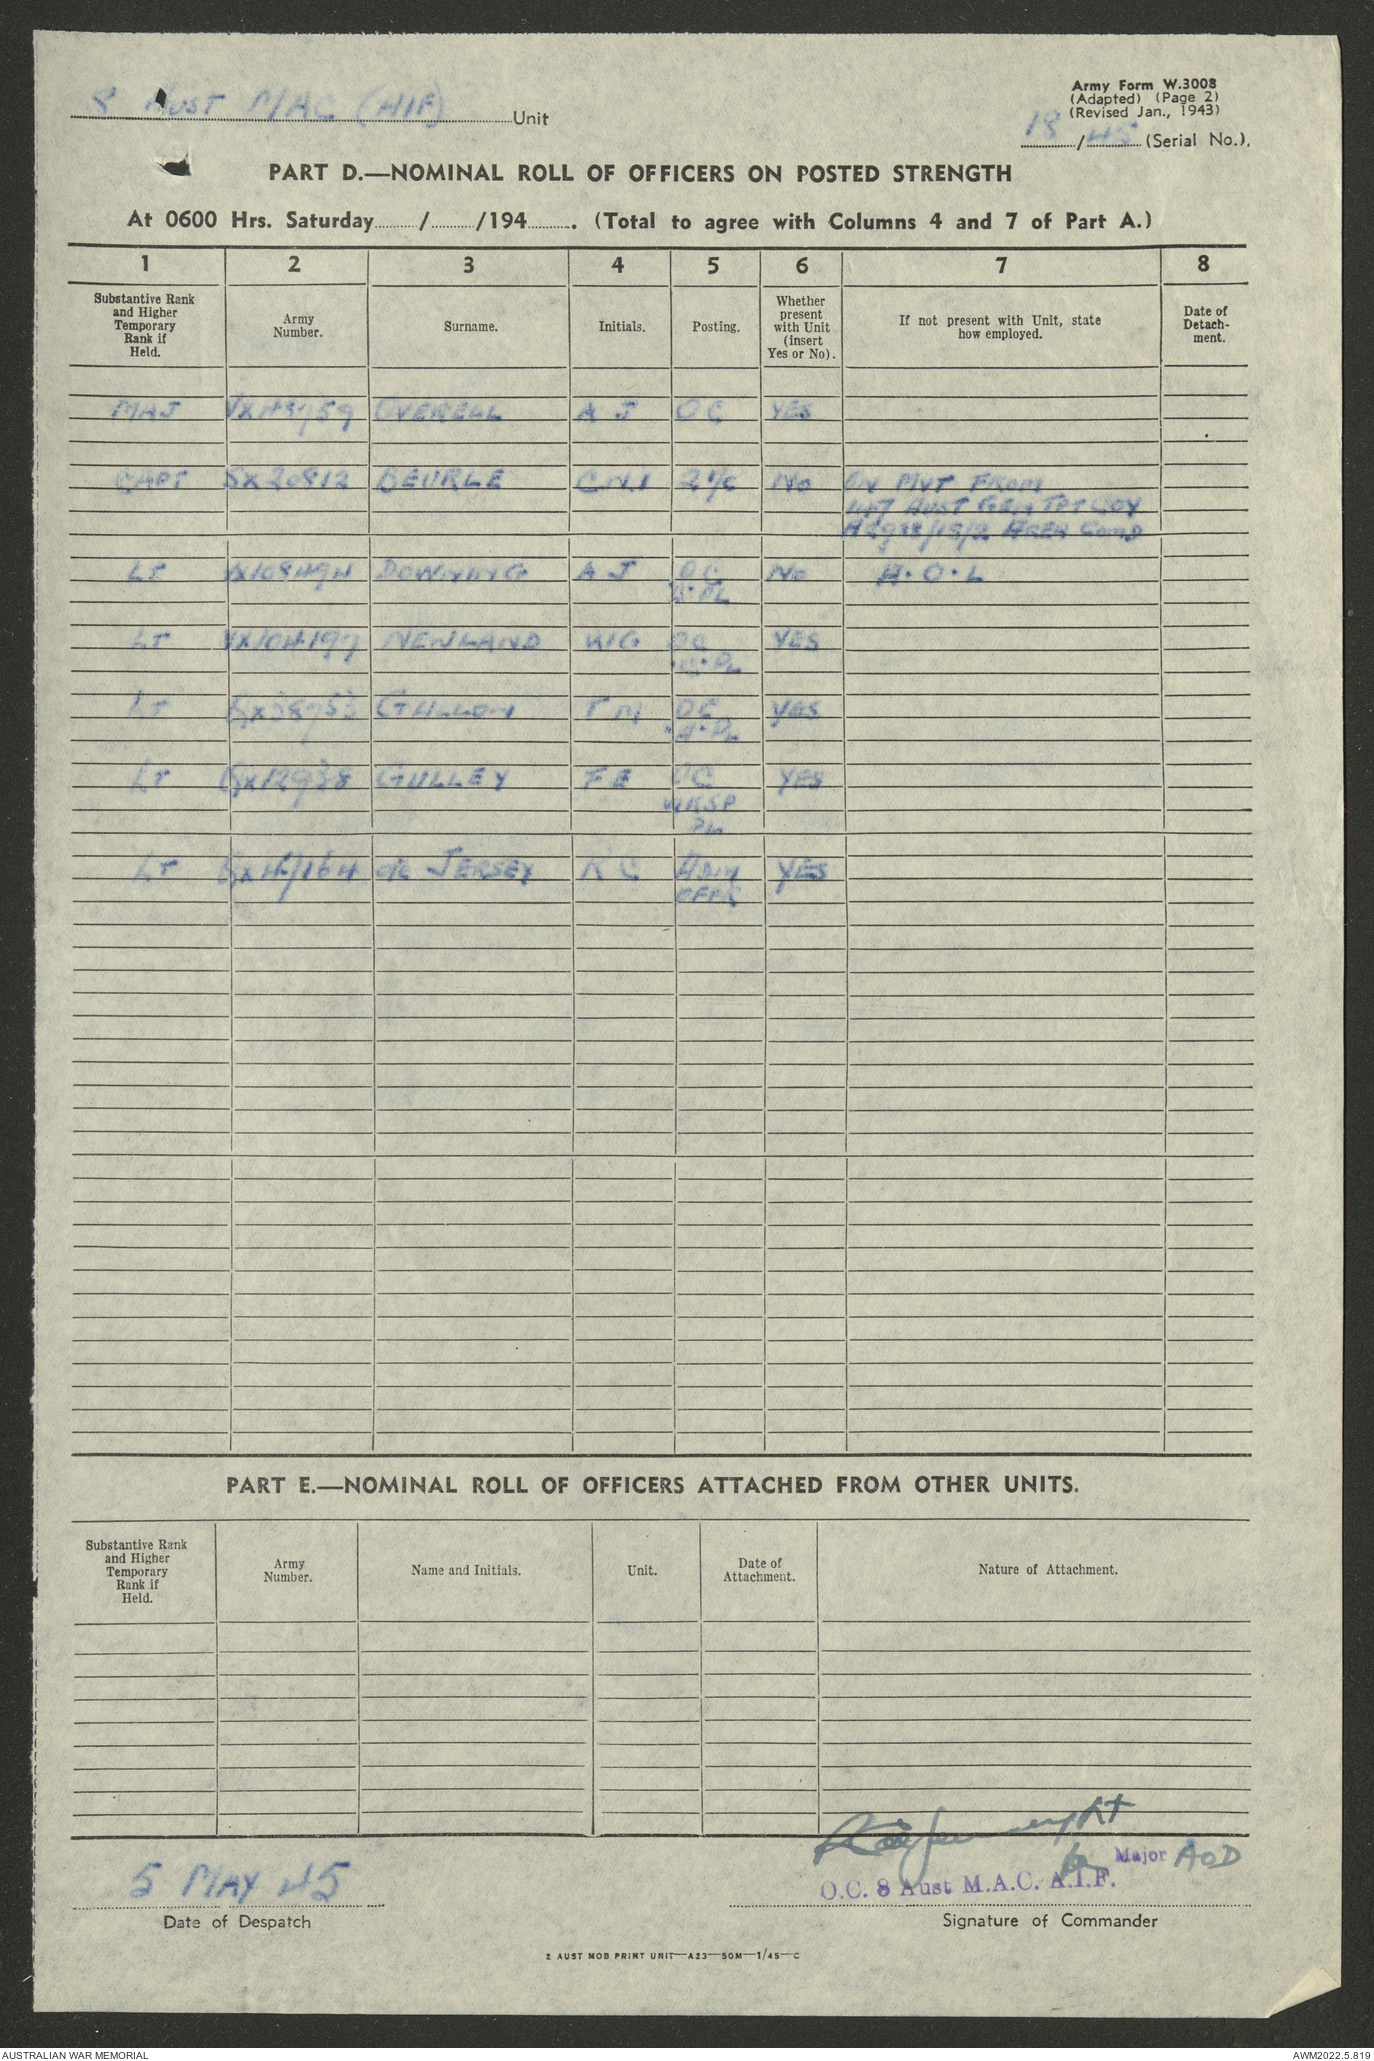 Army Form W.3008
(Adapted) (Page 2)
(Revised Jan., 1943)
8 AUST MAC (AIF) Unit
18/45 (Serial No.).
PART D.—NOMINAL ROLL OF OFFICERS ON POSTED STRENGTH
At 0600 Hrs. Saturday......../......../194......... (Total to agree with Columns 4 and 7 of Part A.)
1 2 3 4 5 6 7 8
Substantive Rank and Higher Temporary Rank if Held. Army Number. Surname. Initials. Posting. Whether present with Unit (insert Yes or No). If not present with Unit, state how employed. Date of Detachment.
MAJ OVERELL A J OC YES
CAPT SX20812 BEURLE 2 i/c No ON MVT FROM
AUST GEN TPT COY
AREA COMD
LT DOWNING A J OC No A.O.L
PL
LT VX104197 NEWLAND OC YES
PL
LT GALLON OC YES
"A" PL
LT GULLEY F E OC YES
WKSP
PL
LT de JERSEY R C ADM YES
OFFR
PART E.—NOMINAL ROLL OF OFFICERS ATTACHED FROM OTHER UNITS.
Substantive Rank and Higher Temporary Rank if Held. Army Number. Name and Initials. Unit. Date of Attachment. Nature of Attachment.
Lt
for Major AOD
O.C. 8 Aust M.A.C. A.I.F.
5 MAY 45
Date of Despatch
Signature of Commander
2 AUST MOB PRINT UNIT—A23—50M—1/45—C
AUSTRALIAN WAR MEMORIAL
AWM2022.5.819